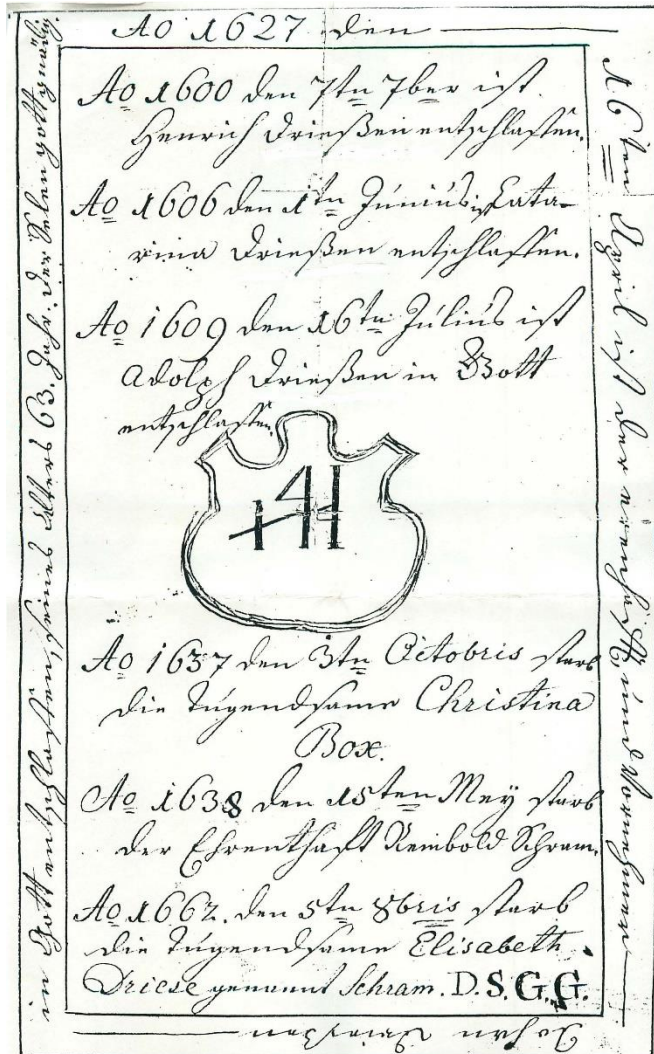 Ao 1627 den
16ten April ist der erenhafft und Vornehmer
Johan Drießen
in Gott entschlaffen seines Alters 63. Jahr. der Selen gott gnädig
Ao 1600 den 7tn 7ber ist
Henrich Drießen entschlaffen.
Ao 1606 den 1tn Junius ist Cata-
rina Drießen entschlaffen.
Ao 1609 den 16tn Julius ist
Adolph Drießen in Gott
entschlaffen
Ao 1637 den 3tn Octobris starb
die Tugendsame Christina
Box.
Ao 1638 den 15ten Mey starb
der Ehrenthaft Reinbold Schram.
Ao 1662. den 5tn 8bris starb
die Tugendsame Elisabeth
Driese genannt Schram. D.S.G.G.